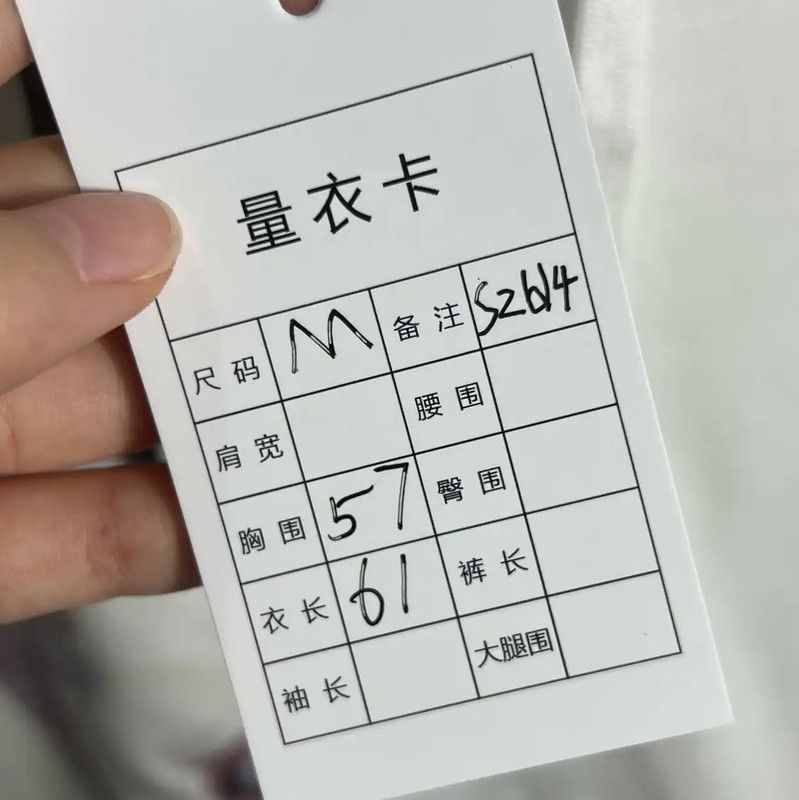 量衣卡
尺码 M 备注 S2614
肩宽 腰围
胸围 57 臀围
衣长 61 裤长
袖长 大腿围